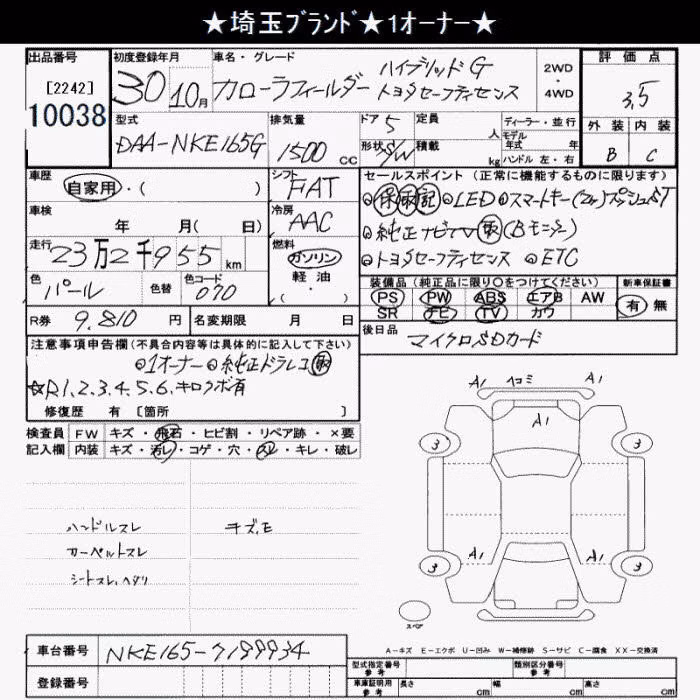 ★埼玉ブランド★1オーナー★
出品番号
[2242]
10038
初度登録年月
30 10月
車名・グレード
カローラフィールダー
ハイブリッドG
トヨタセーフティセンス
2WD
4WD
評価点
3,5
外装 内装
B C
型式
DAA-NKE165G
排気量
1500 cc
ドア 5
形状 S/W
定員 人
積載 kg
ディーラー・並行
モデル年式 年式
ハンドル 左・右
車歴
自家用・( )
シフト
FAT
車検
年 月( 日)
冷房
AAC
走行
23万2千955 km
燃料
ガソリン
軽・油
( )
色
パール
色替
色コード
070
R券 9.810 円
名変期限 月 日
セールスポイント(正常に機能するものに限ります)
◎保取記 ◎LED ◎スマートキー(2ヶ)プッシュST
◎純正ナビTV取(Bモニター)
◎トヨタセーフティセンス ◎ETC
装備品(純正品に限り○をつけてください)
PS PW ABS エアB AW
SR ナビ TV カワ
新車保証書
有 無
後日品
マイクロSDカード
注意事項申告欄(不具合内容等は具体的に記入して下さい)
◎1オーナー ◎純正ドラレコ取
☆R1.2.3.4.5.6.キロクボ有
修復歴 有 [箇所 ]
検査員 FW キズ・飛石・ヒビ割・リペア跡・×要
記入欄 内装 キズ・汚レ・コゲ・穴・スレ・キレ・破レ
ハンドルスレ キズ、E
カーペットスレ
シートスレ、ヘタリ
A1 ヘコミ A1
A1
3 3
A1 A1
3 3
スペア
A=キズ E=エクボ U=凹み W=補修跡 S=サビ C=腐食 XX=交換済
車台番号 NKE165-7199934
登録番号
型式指定番号 参考
類別区分番号 参考
車庫証明用 参考
長さ cm 幅 cm 高さ cm